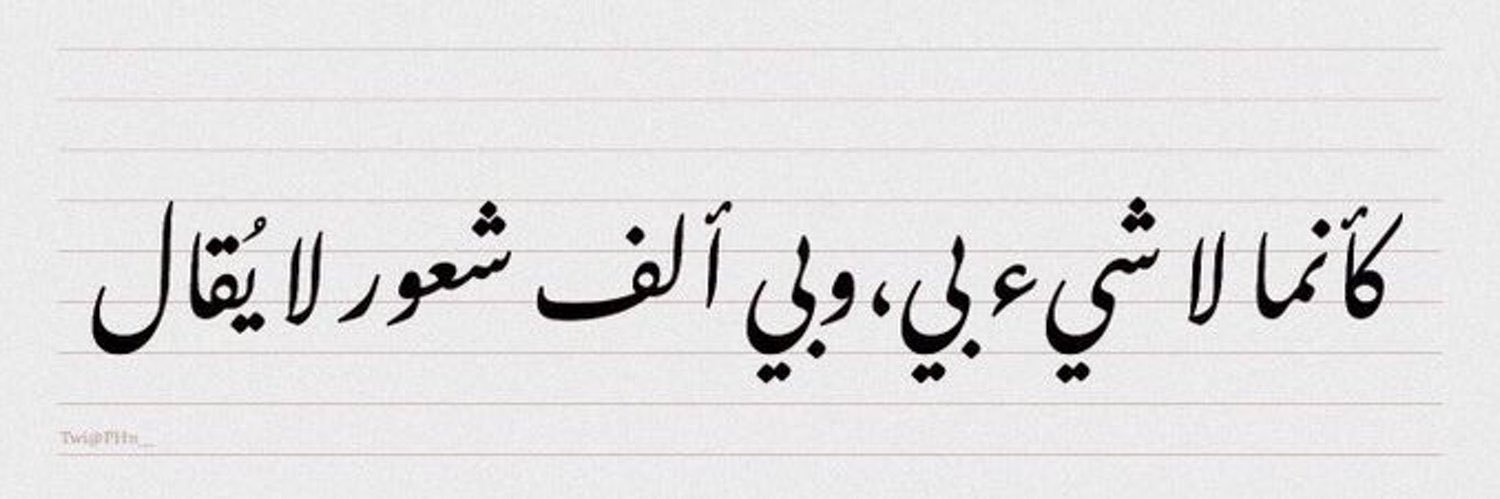 كأنما لا شيء بي، وبي ألف شعور لا يُقال
Twi@PHn__